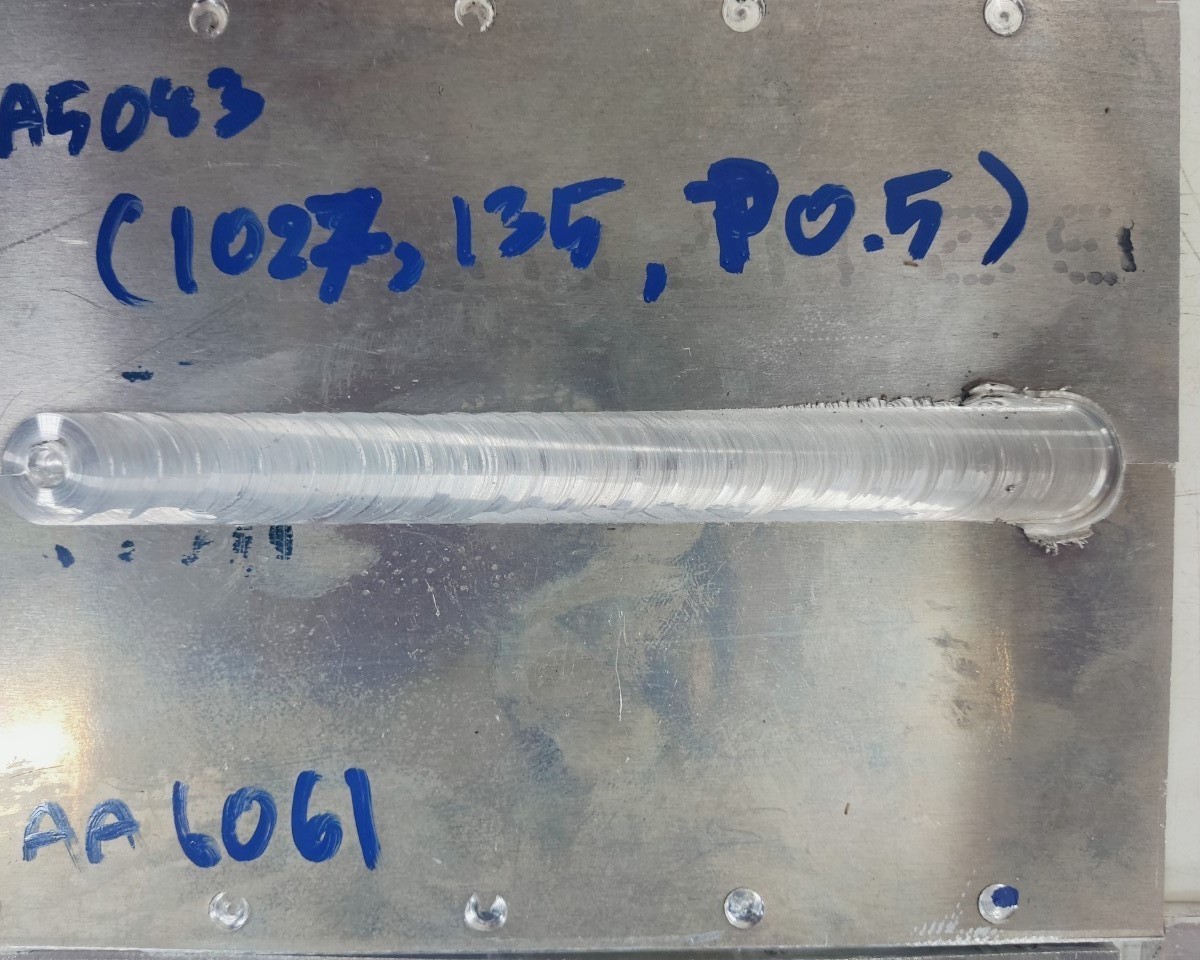 A5083
(1027, 135, P0.5)
AA 6061